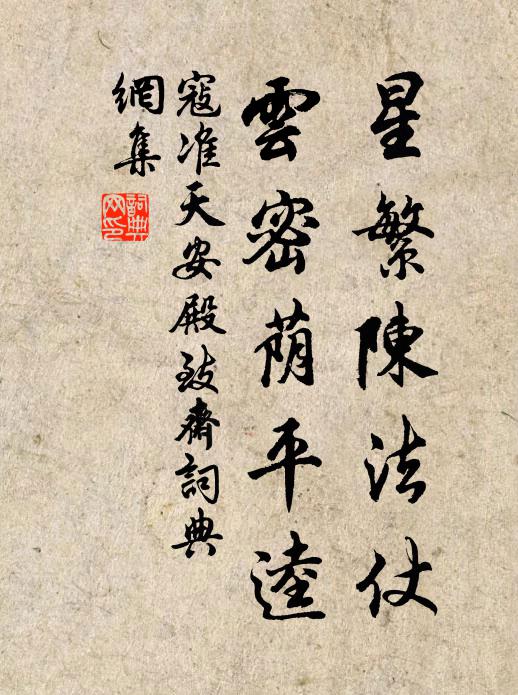 星繁陳法仗
雲密蔭平逵
寇准天安殿致齋詞典
網集
詞典
网印